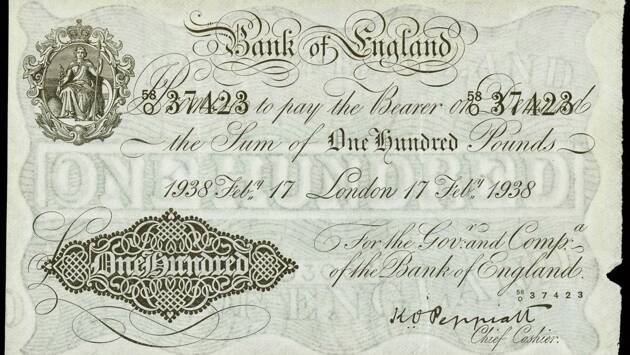 Bank of England
58/O 37423 58/O 37423
I Promise to pay the Bearer on Demand
the Sum of One Hundred Pounds
1938 Feby 17 London 17 Feby 1938
For the Govr and Compa
of the Bank of England.
One Hundred
58/O 37423
K O Peppiatt
Chief Cashier.